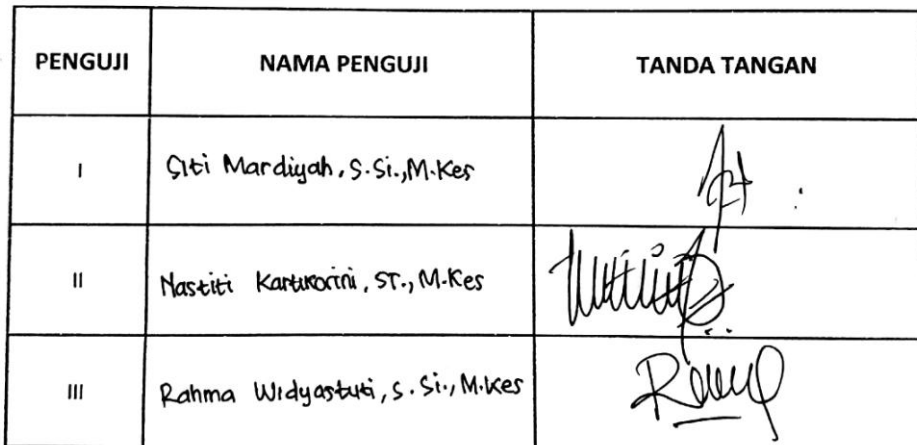 PENGUJI NAMA PENGUJI TANDA TANGAN
I Siti Mardiyah, S.Si., M.Kes
II Nastiti Kartikorini, ST., M.Kes
III Rahma Widyastuti, S.Si., M.Kes